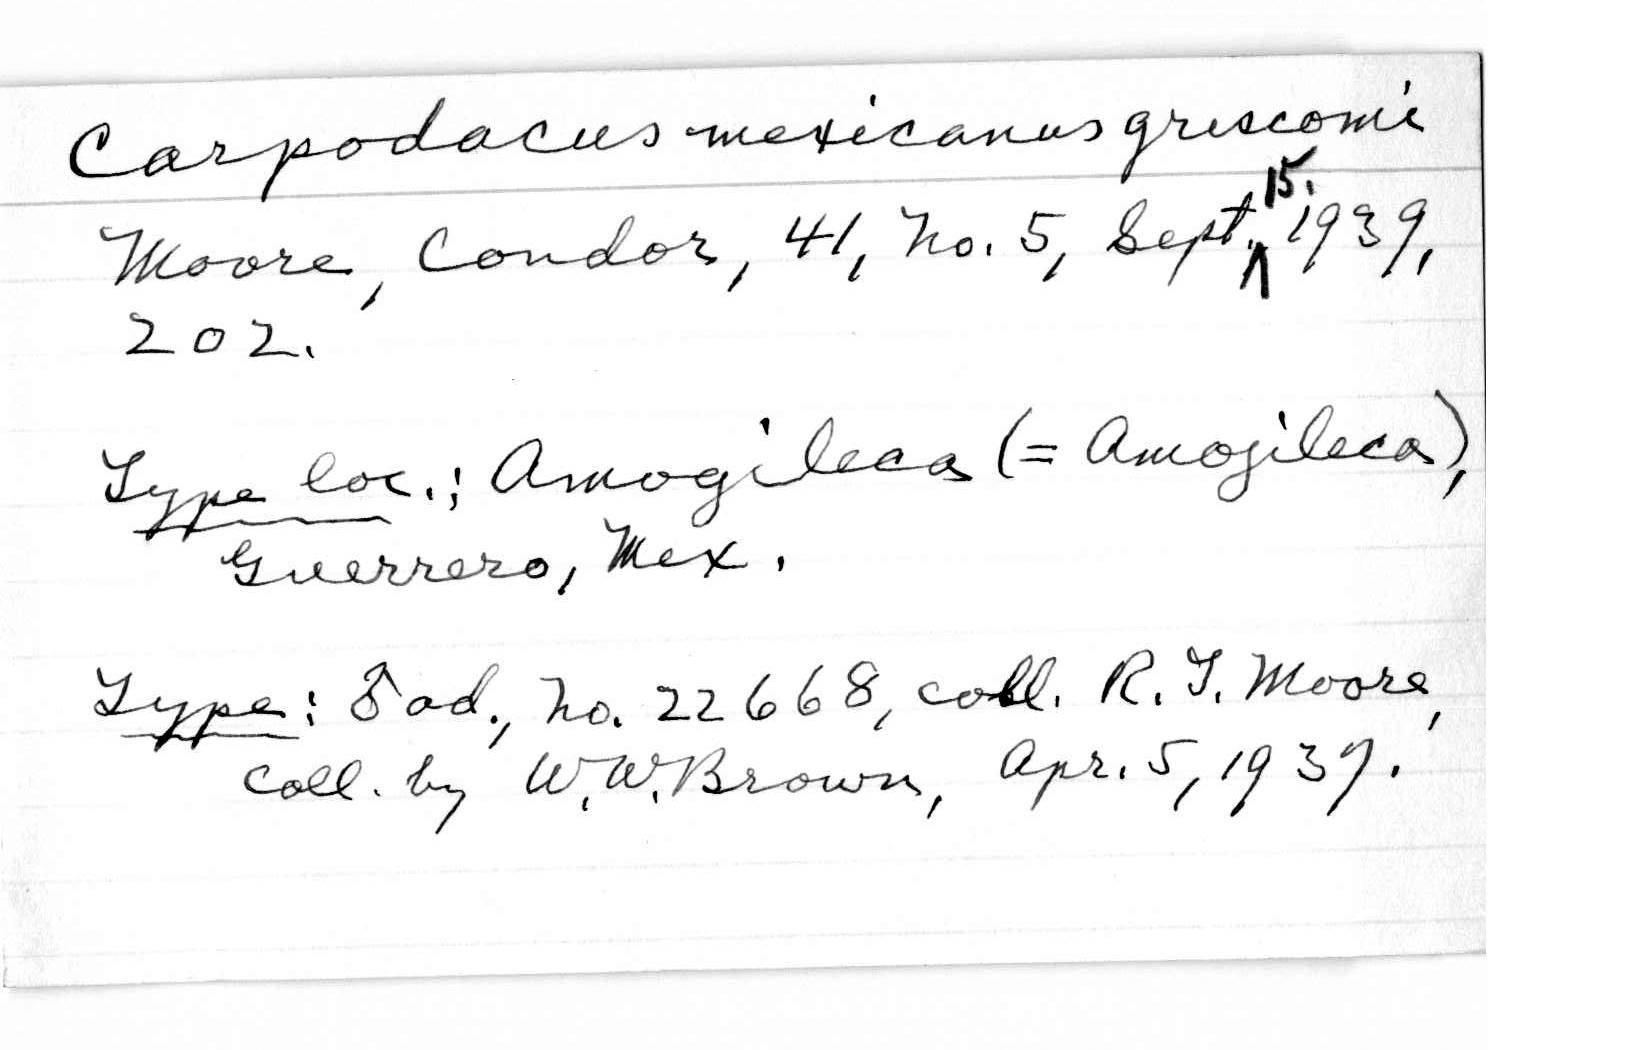 Carpodacus mexicanus griscomi
Moore, Condor, 41, no. 5, Sept. 15, 1939,
202.
Type loc.; Amogileca (= Amojileca),
Guerrero, Mex.
Type: ♂ ad., no. 22668, coll. R. T. Moore,
coll. by W. W. Brown, Apr. 5, 1939.